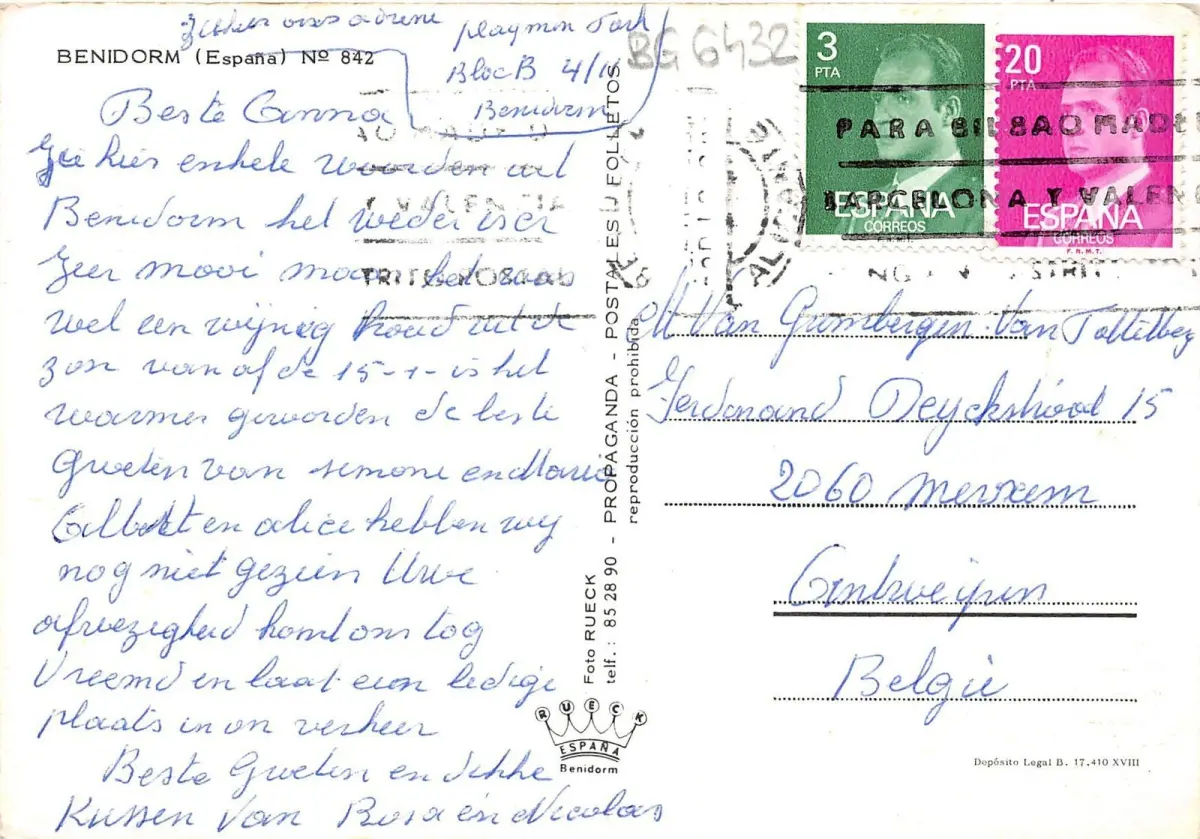 Zie hier ons adres
playmon Park
Bloc B 4/
Benidorm
BG 6432
BENIDORM (España) Nº 842
Beste Anna
Zie hier enkele woorden uit
Benidorm het weder is er
Zeer mooi maar het was
wel een wijnig koud uit de
zon van af de 15-1- is het
warmer geworden de beste
Groeten van simone en Maria
Albert en alice hebben wij
nog niet gezien Uwe
afwezigheid komt ons tog
Vreemd en laat een ledige
plaats in on verkeer
Beste Groeten en dikke
Kussen van Rosa en Nicolas
Foto RUECK
telf.: 85 28 90 - PROPAGANDA - POSTALES Y FOLLETOS
reproducción prohibida
RUECK
ESPAÑA
Benidorm
3
PTA
ESPAÑA
CORREOS
F.N.M.T.
20
PTA
ESPAÑA
CORREOS
F.N.M.T.
PARA BILBAO MAD
BARCELONA Y VALEN
Van Grimbergen-Van
Ferdinand 15
2060 Merxem
Antwerpen
België
Depósito Legal B. 17.410 XVIII